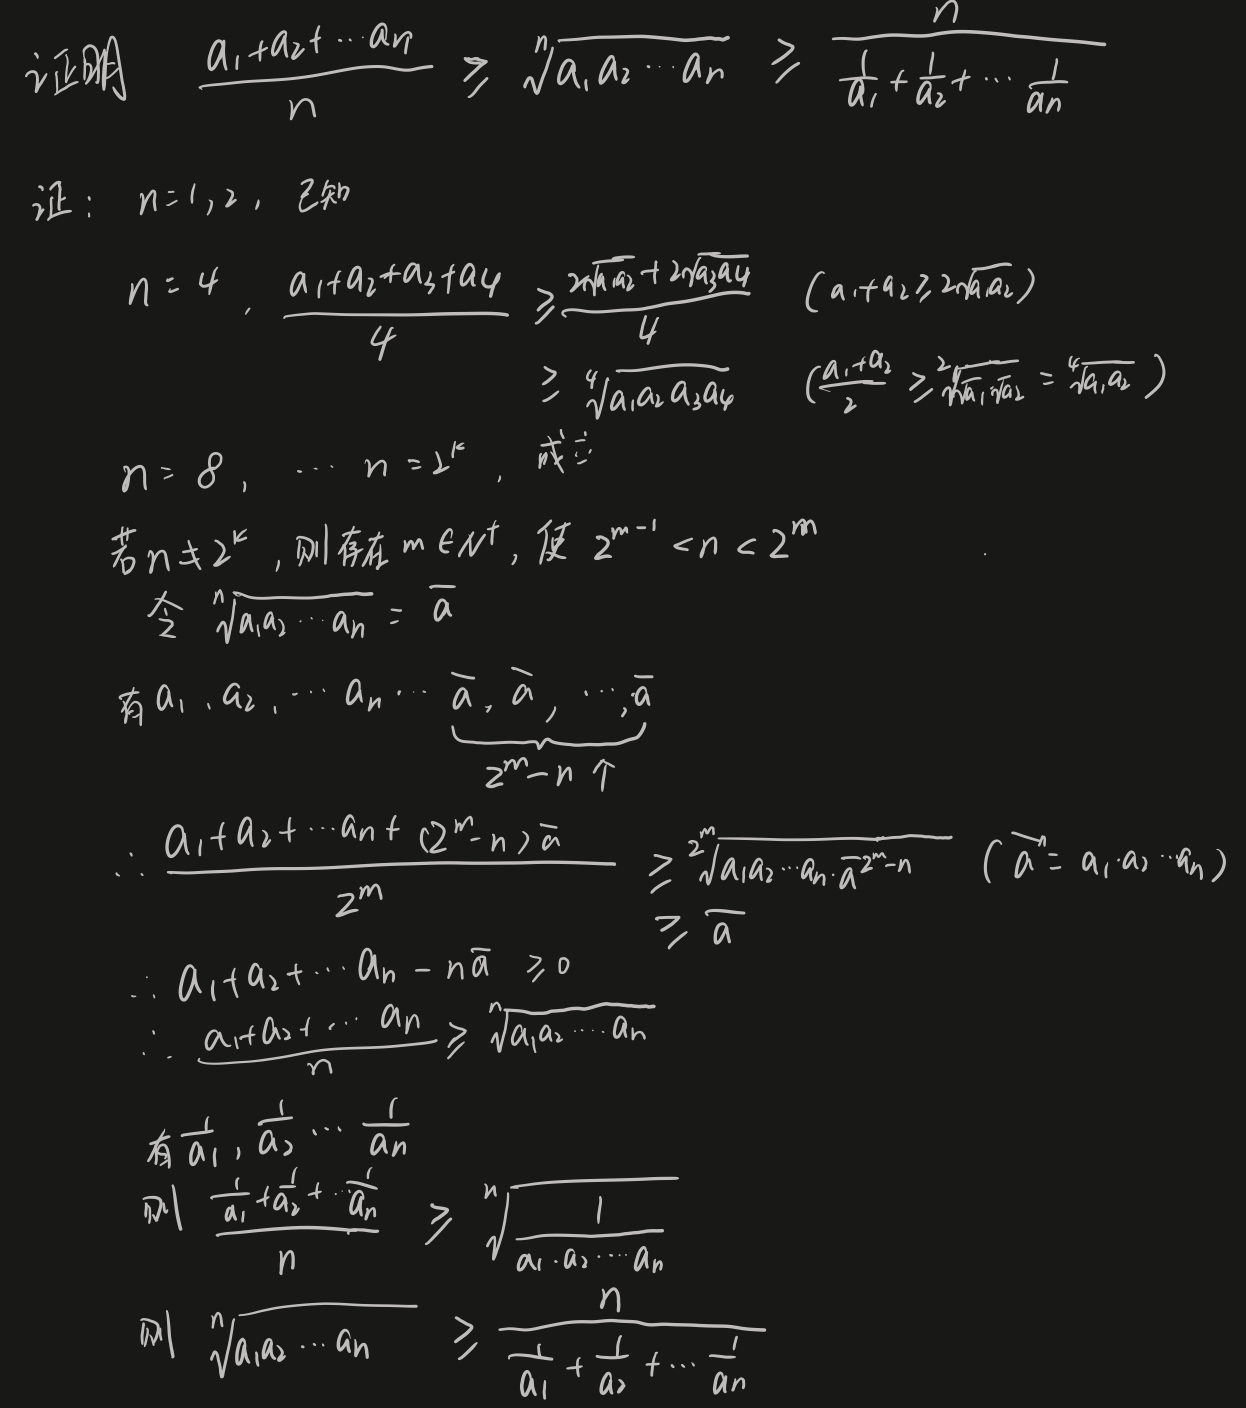 证明 $\frac{a_1+a_2+\cdots a_n}{n} \geqslant \sqrt[n]{a_1 a_2 \cdots a_n} \geqslant \frac{n}{\frac{1}{a_1}+\frac{1}{a_2}+\cdots\frac{1}{a_n}}$
证: n=1,2, 已知
n=4, $\frac{a_1+a_2+a_3+a_4}{4} \geqslant \frac{2\sqrt{a_1a_2}+2\sqrt{a_3a_4}}{4}$ ($a_1+a_2 \geqslant 2\sqrt{a_1a_2}$)
$\geqslant \sqrt[4]{a_1a_2a_3a_4}$ ($\frac{a_1+a_2}{2} \geqslant \sqrt[2]{\sqrt{a_1}\cdot\sqrt{a_2}} = \sqrt[4]{a_1a_2}$)
n=8, ⋯ $n=2^k$, 成立
若 $n \neq 2^k$, 则存在 $m \in N^+$, 使 $2^{m-1} < n < 2^m$
令 $\sqrt[n]{a_1a_2\cdots a_n} = \overline{a}$
有 $a_1, a_2, \cdots a_n \cdots \underbrace{\overline{a}, \overline{a}, \cdots, \overline{a}}$
$2^m-n$ 个
∴ $\frac{a_1+a_2+\cdots a_n+(2^m-n)\overline{a}}{2^m} \geqslant \sqrt[2^m]{a_1a_2\cdots a_n \cdot \overline{a}^{2^m-n}}$ ($\overline{a}^n = a_1 \cdot a_2 \cdots a_n$)
$\geqslant \overline{a}$
∴ $a_1+a_2+\cdots a_n - n\overline{a} \geqslant 0$
∴ $\frac{a_1+a_2+\cdots a_n}{n} \geqslant \sqrt[n]{a_1a_2\cdots a_n}$
有 $\frac{1}{a_1}, \frac{1}{a_2} \cdots \frac{1}{a_n}$
则 $\frac{\frac{1}{a_1}+\frac{1}{a_2}+\cdots\frac{1}{a_n}}{n} \geqslant \sqrt[n]{\frac{1}{a_1 \cdot a_2 \cdots a_n}}$
则 $\sqrt[n]{a_1a_2\cdots a_n} \geqslant \frac{n}{\frac{1}{a_1}+\frac{1}{a_2}+\cdots\frac{1}{a_n}}$